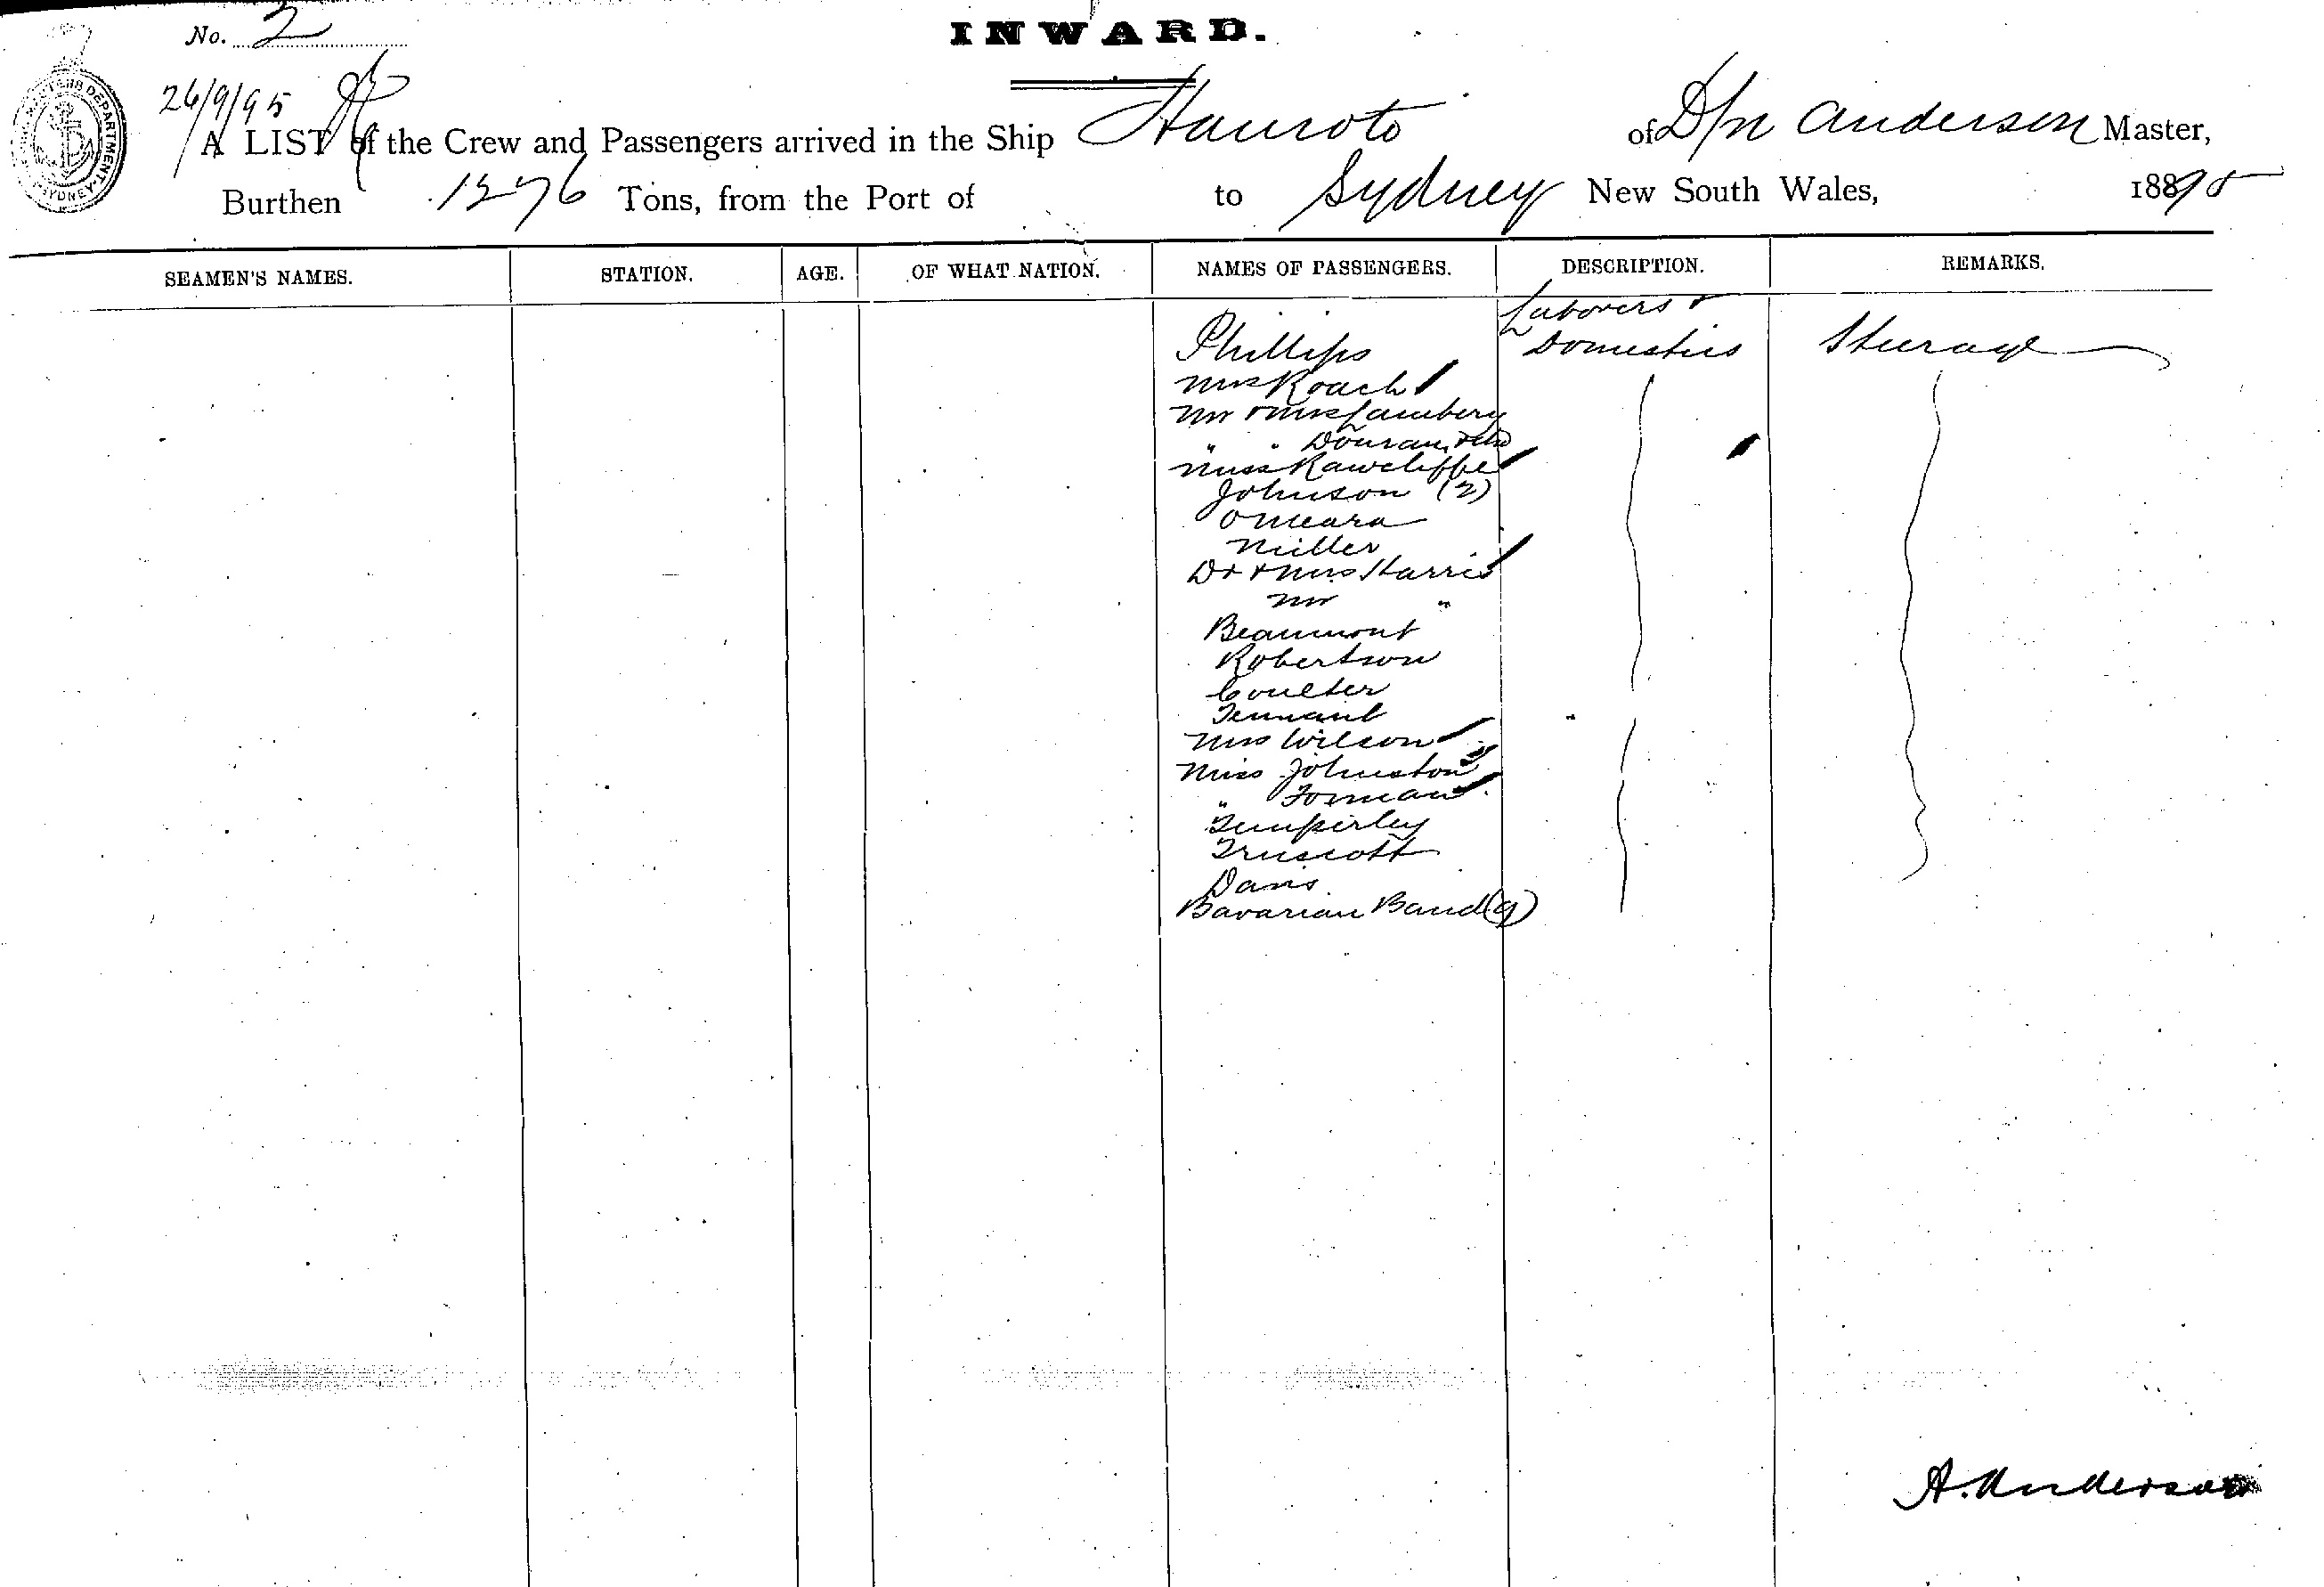 No. 2
INWARD.
26/9/95
A LIST of the Crew and Passengers arrived in the Ship Hauroto of D/n Anderson Master,
Burthen 1276 Tons, from the Port of to Sydney New South Wales, 1895
SEAMEN'S NAMES. STATION. AGE. OF WHAT NATION. NAMES OF PASSENGERS. DESCRIPTION. REMARKS.
Laborers &
Phillips Domestics Steerage
Mrs Roach
Mr & Mrs Lambery
" " Douran
Miss Rawcliffe
Johnson (2)
O'Meara
Miller
Dr & Mrs Harris
Mr "
Beaumont
Robertson
Coulter
Tennant
Mrs Wilson
Miss Johnston
" Forman
Temperley
Truscott
Davis
Bavarian Band (9)
A. Anderson